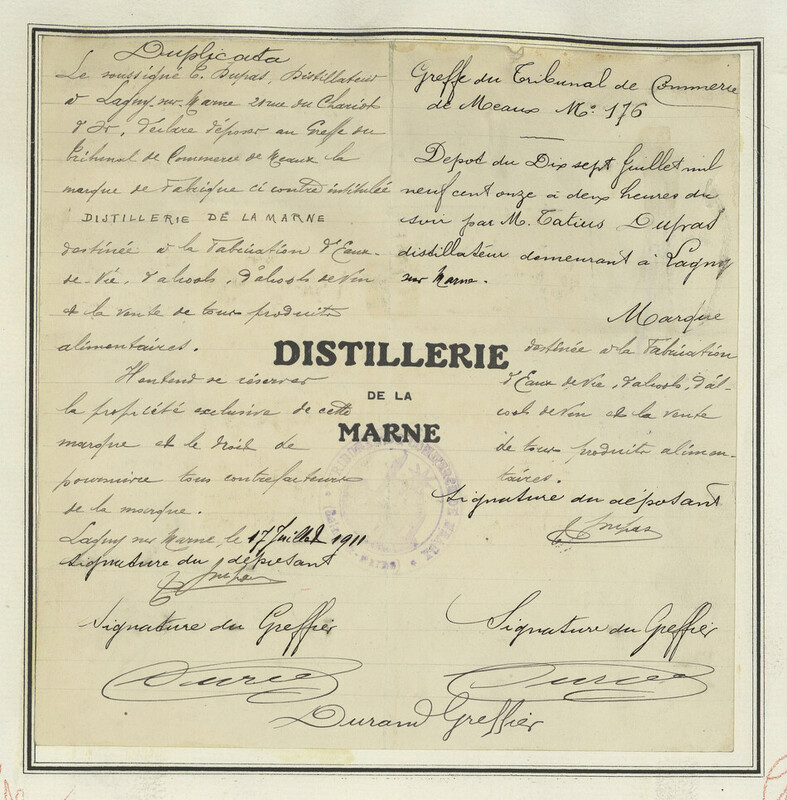 Duplicata
Le soussigné C. Dupas, Distillateur
à Lagny-sur-Marne 20 rue du Chariot
d'Or, déclare déposer au Greffe du
Tribunal de Commerce de Meaux la
marque de Fabrique ci contre intitulée
DISTILLERIE DE LA MARNE
destinée à la Fabrication d'Eaux-
de-Vie, d'alcools, d'alcools de Vin
et la vente de tous produits
alimentaires.
Il entend se réserver
la propriété exclusive de cette
marque et le droit de
poursuivre tous contrefacteurs
de la marque.
Lagny sur Marne, le 17 Juillet 1911
Signature du déposant
Dupas
Signature du Greffier
Greffe du Tribunal de Commerce
de Meaux No 176
Depot du Dix sept Juillet mil
neuf cent onze à deux heures du
soir par M. Tatius Dupas
distillateur demeurant à Lagny
sur Marne.
Marque
destinée à la Fabrication
d'Eaux de Vie, d'alcools, d'al-
cools de Vin et la vente
de tous produits alimen-
taires.
Signature du déposant
Dupas
Signature du Greffier
DISTILLERIE
DE LA
MARNE
Durand Greffier